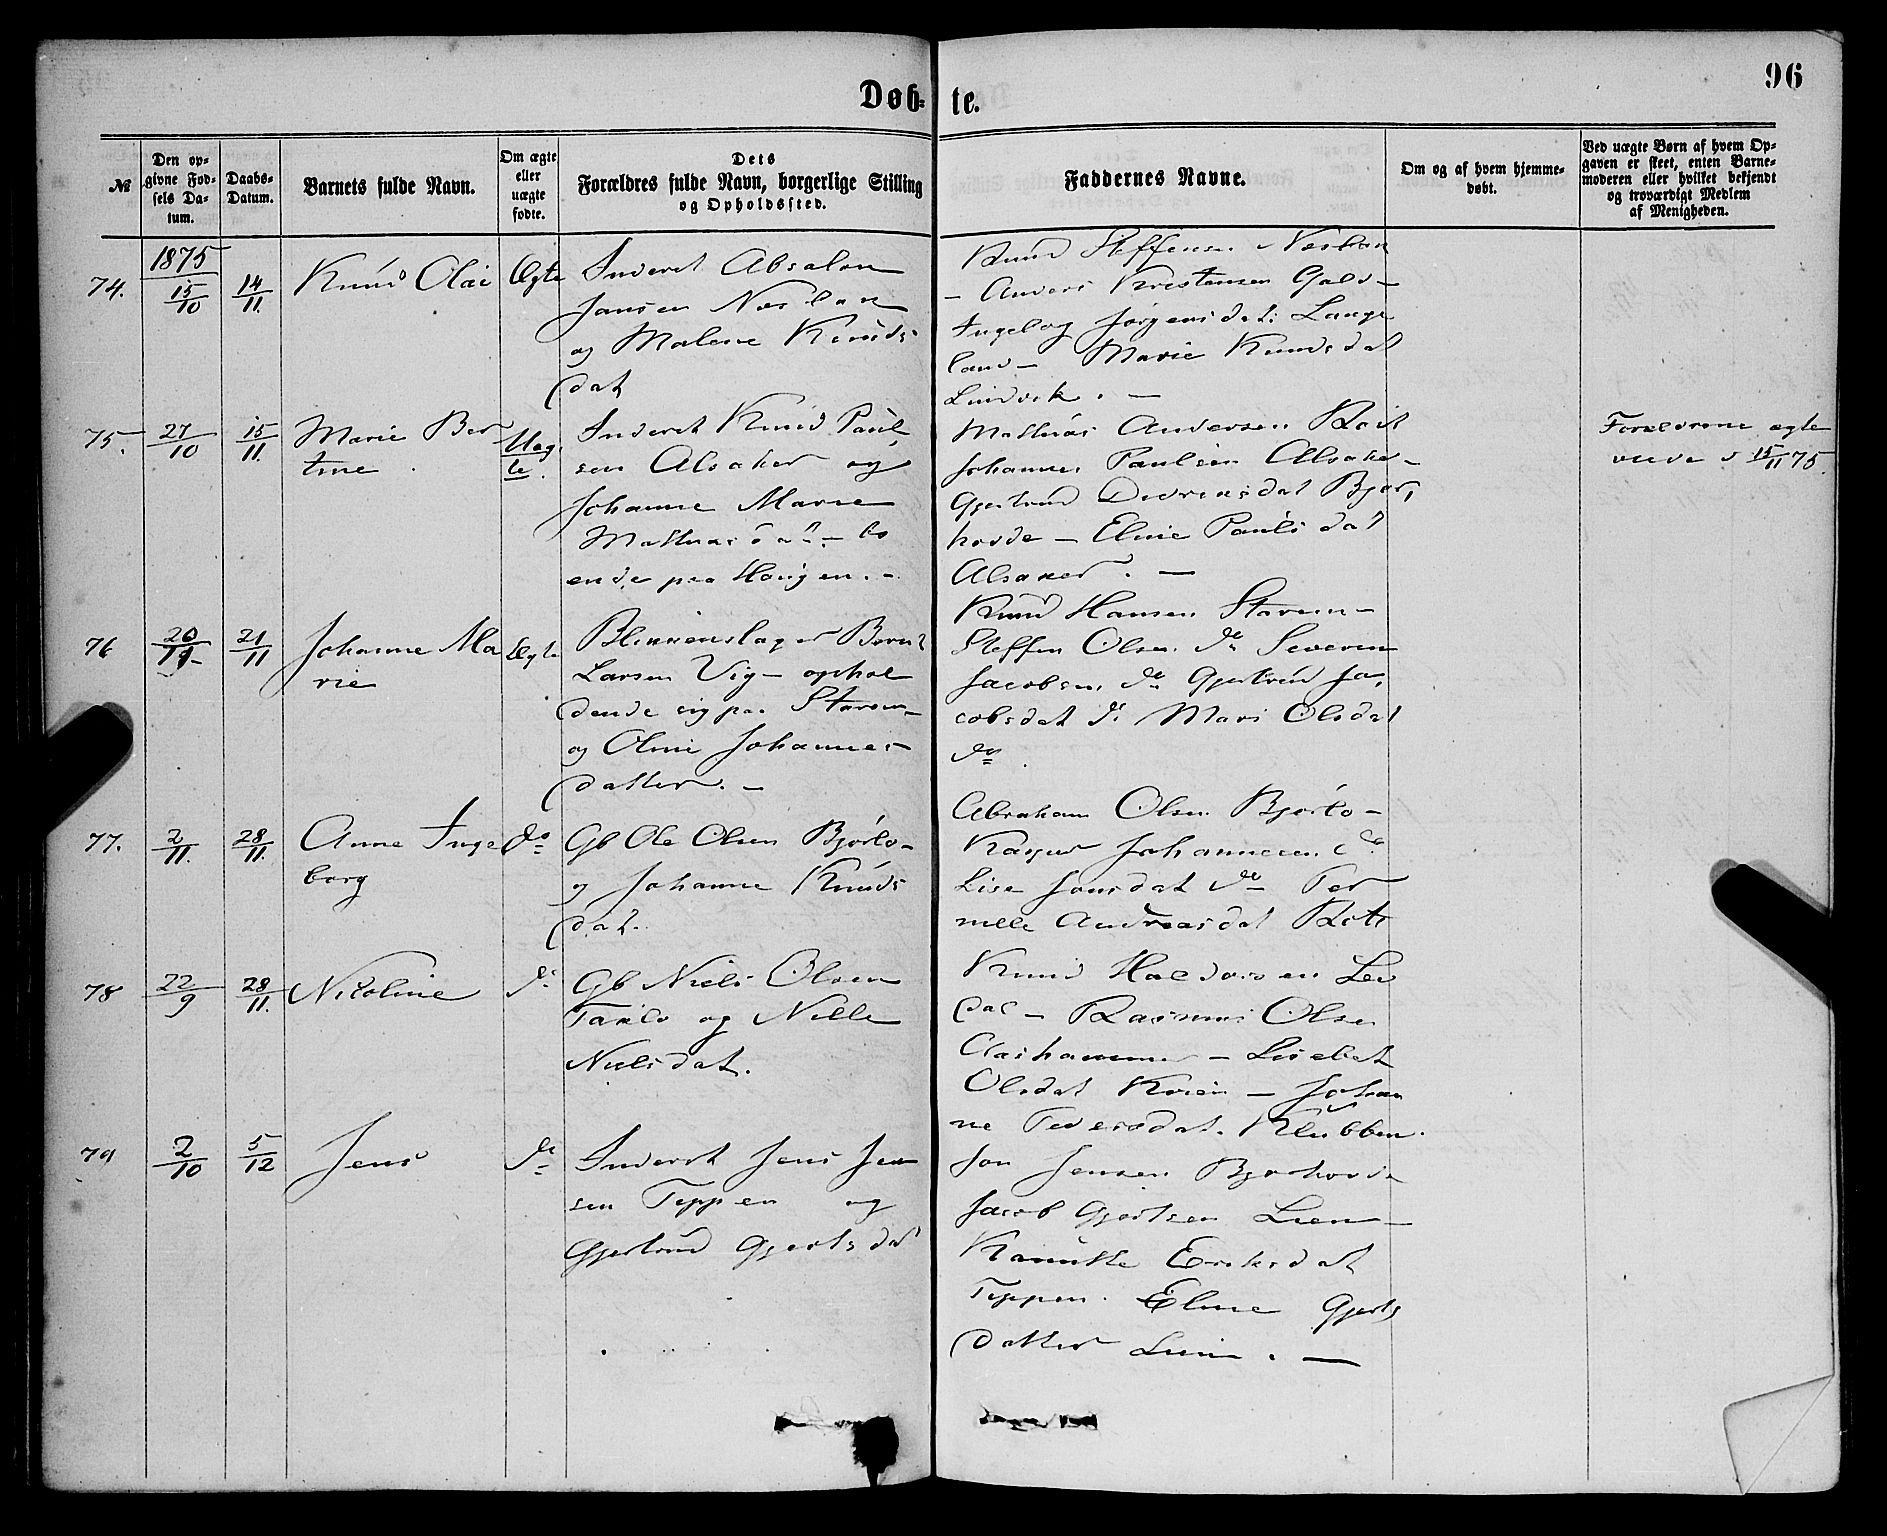 96
Døb-
te.
№
Den op-
givne Fød-
sels Da-
tum.
Daabs-
Datum.
Barnets fulde Navn.
Om ægte
eller
uægte
fødte.
Dets
Forældres fulde Navn, borgerlige Stilling
og Opholdssted.
Faddernes Navne.
Om og af hvem hjemme-
døbt.
Ved uægte Børn af hvem Op-
gaven er skeet, enten Barne-
moderen eller hvilket bekjendt
og troværdigt Medlem
af Menigheden.
1875
74.
15/10
14/11.
Knud Olai
Ægte
Inderst Absalon
Jansen
og Malene Knuds
dat
Knud Steffensen
- Anders Kristensen
Ingebog Jørgensdat: Lange
land - Marie Knudsdat
Lindvik. -
75.
27/10
15/11.
Marie Ber
tine
Uæg
te.
Inderst Knud Paul
sen Alsaker og
Johanne Marie
Mathiasdat. - bo
ende paa Haugen. -
Mathias Andersen
Johannes Paulsen Alsaker -
Gjertrud
hovde - Eline Paulsdat
Alsaker. -
Forældrene ægte
viede d 15/11 75.
76
21/11
Johanne Ma
rie
Ægte
Blikkenslager Bernt
Larsen Vig - ophol
dende sig paa
og Oline Johannes-
datter. -
Knud Hansen
Steffen Olsen do Severin
Jacobsen, do Gjertrud Ja,
cobsdat do Mari Olsdat
do
77.
2/11.
28/11.
Anne Inge
borg
do
Gb Ole Olsen Bjørlo -
og Johanne Knuds
dat.
Abraham Olsen Bjørlo -
Johannesen do
Lise Jonsdat do Per
nelle Andreasdat
78
22/9
28/11.
Nicoline
do
Gb Niels Olsen
og Nille
Nielsdat.
Knud
dal - Rasmus Olsen
- Lisebet
Olsdat - Johan
ne Pedersdat.
79
2/10
5/12
Jens
do
Inderst Jens Jen
sen Teppen og
Gjertrud Gjertsdat
Jon Jensen
Jacob Gjertsen Lien -
Eriksdat
Teppen. Eline Gjerts
datter Lien. -